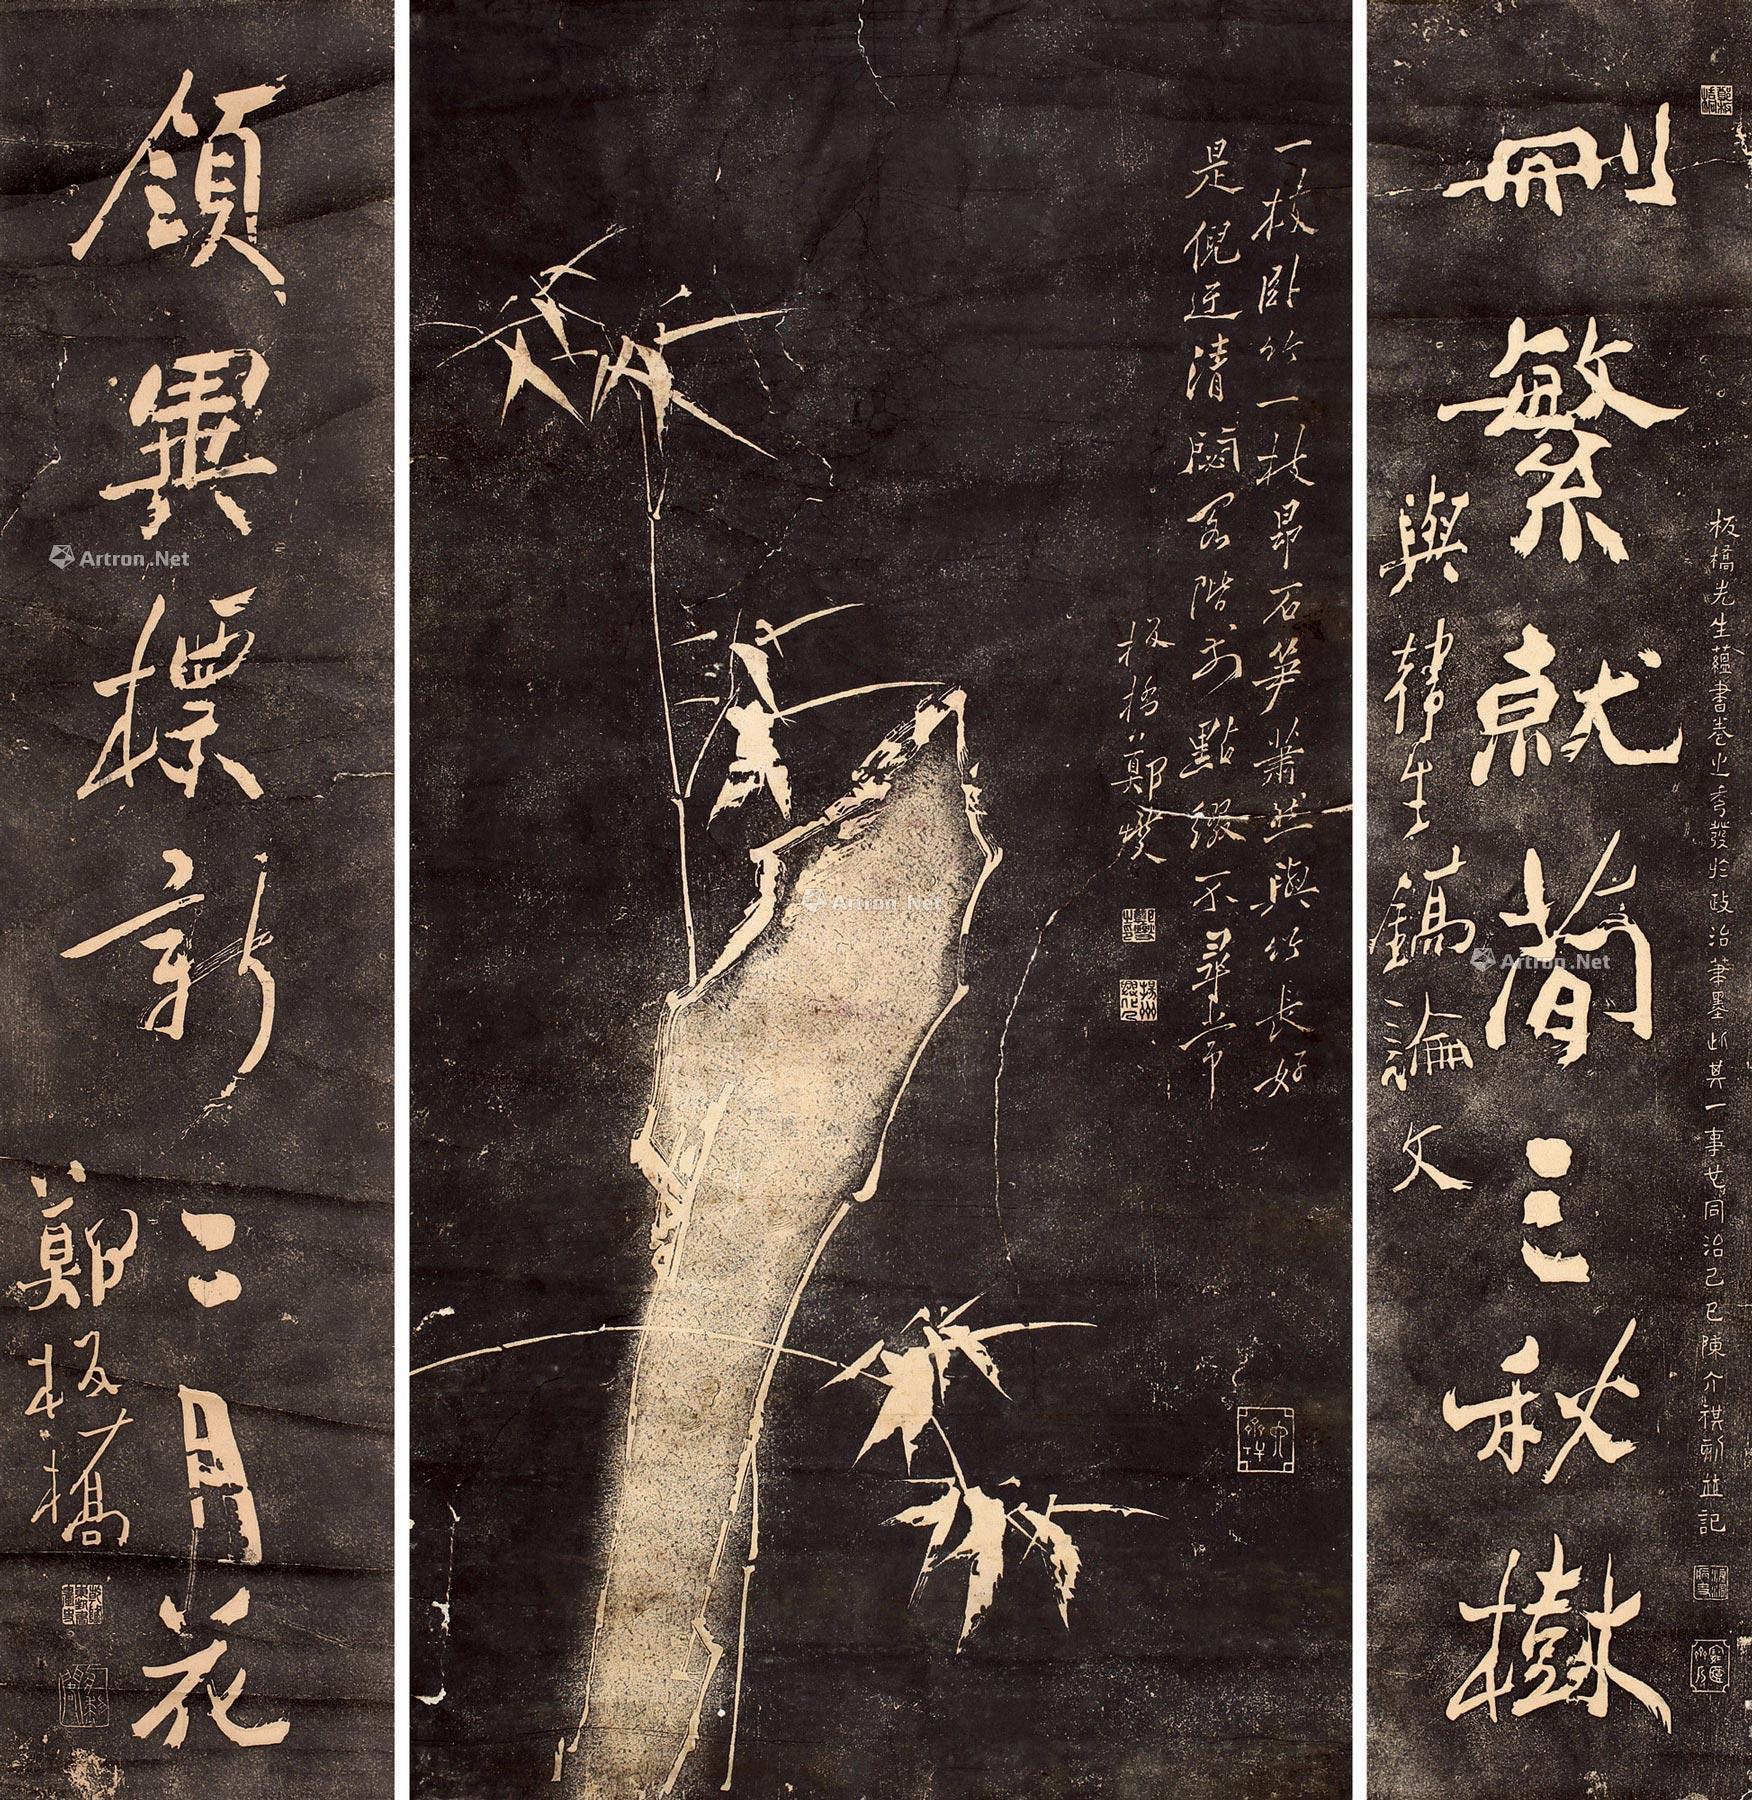 板橋先生蘊書卷之秀發於政治筆墨此其一事也同治己巳陳介祺刻並記
刪繁就簡三秋樹
與韓生鎬論文
一枝臥竹一枝昂石筍蕭然與竹長好
是倪迂清閟閣階前點綴不尋常
板橋鄭燮
領異標新二月花
鄭板橋
Artron.Net
Artron.Net
Artron.Net